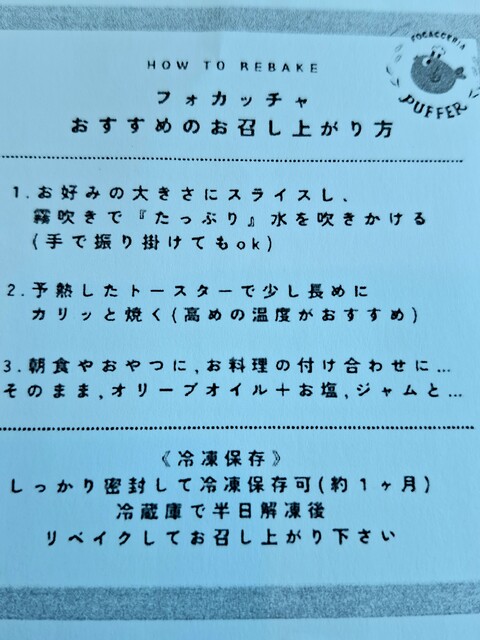 FOCACCERIA
PUFFER
HOW TO REBAKE
フォカッチャ
おすすめのお召し上がり方
1.お好みの大きさにスライスし、
霧吹きで『たっぷり』水を吹きかける
(手で振り掛けてもok)
2.予熱したトースターで少し長めに
カリッと焼く(高めの温度がおすすめ)
3.朝食やおやつに,お料理の付け合わせに…
そのまま,オリーブオイル＋お塩,ジャムと…
《冷凍保存》
しっかり密封して冷凍保存可(約1ヶ月)
冷蔵庫で半日解凍後
リベイクしてお召し上がり下さい